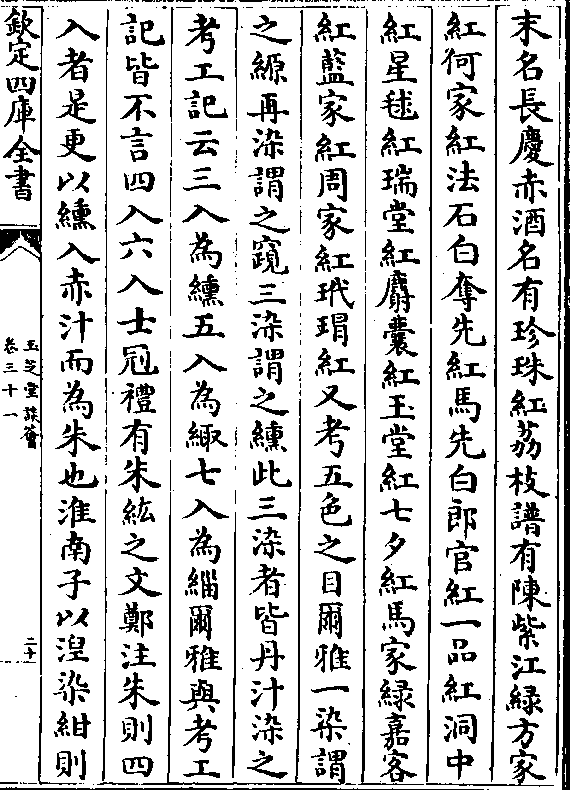 末名長慶赤酒名有珍珠紅荔枝譜有陳紫江緑方家
紅何家紅法石白奪先紅馬先白郎官紅一品紅洞中
紅星毬紅瑞堂紅麝囊紅玉堂紅七夕紅馬家緑嘉客
紅藍家紅周家紅玳瑁紅又考五色之目爾雅一染謂
之縓再染謂之窺三染謂之纁此三染者皆丹汁染之
考工記云三入為纁五入為緅七入為緇爾雅與考工
記皆不言四入六入士冠禮有朱紘之文鄭注朱則四
入者是更以纁入赤汁而為朱也淮南子以湼染紺則
欽定四庫全書
玉芝堂談薈
卷三十一
二十